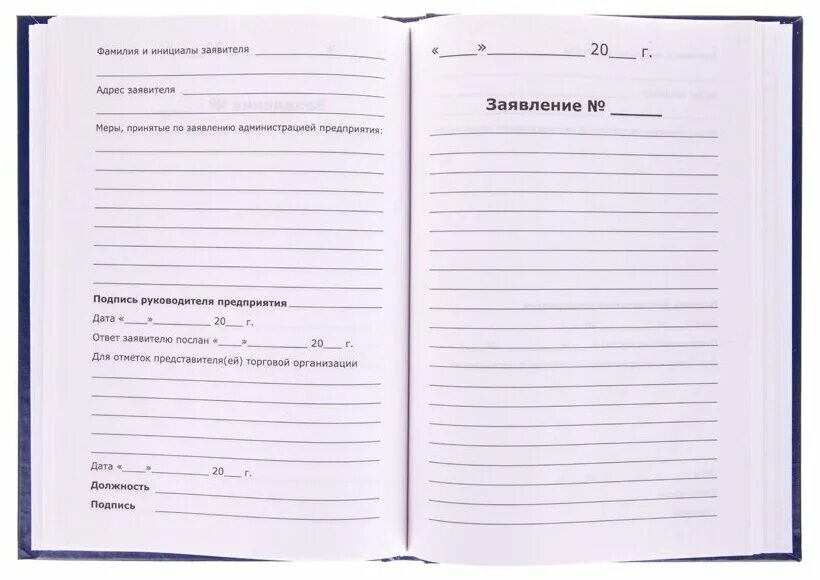 Фамилия и инициалы заявителя
Адрес заявителя
Меры, принятые по заявлению администрацией предприятия:
Подпись руководителя предприятия
Дата «____»__________ 20___ г.
Ответ заявителю послан «____»__________ 20___ г.
Для отметок представителя(ей) торговой организации
Дата «____»__________ 20___ г.
Должность
Подпись
«____»____________ 20___ г.
Заявление № _____